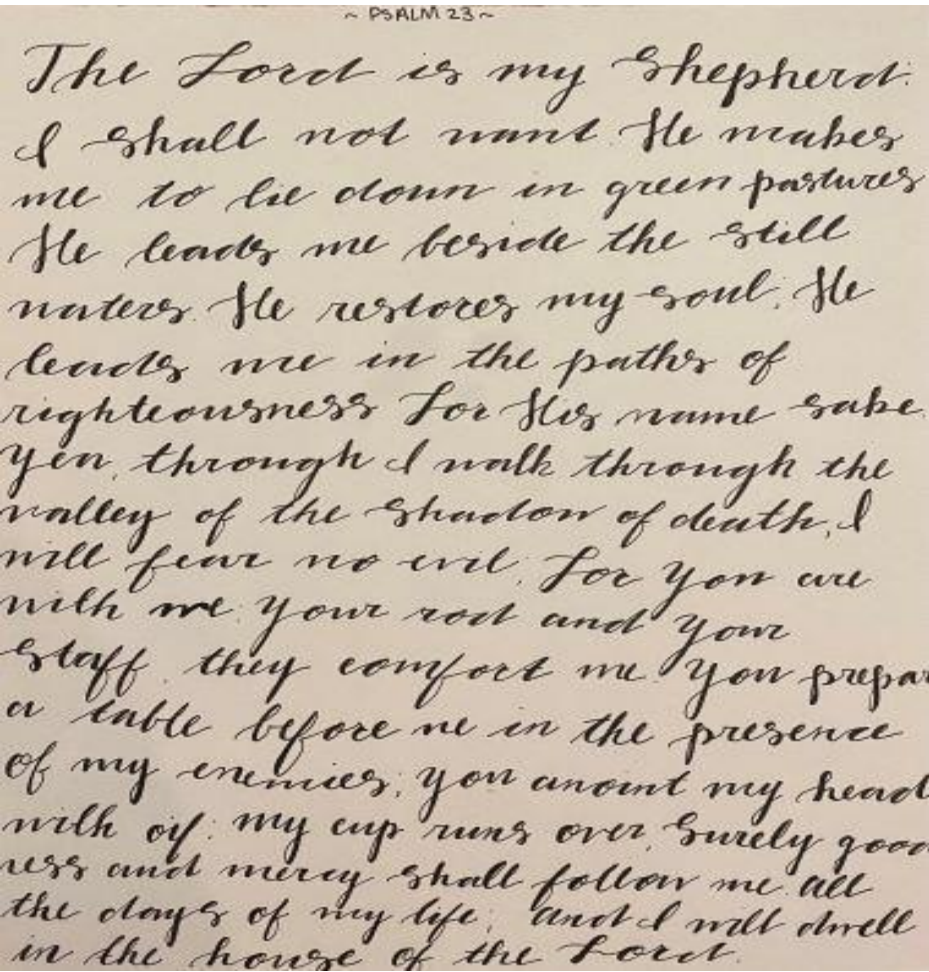 ~ PSALM 23 ~
The Lord is my Shepherd.
I shall not want. He makes
me to lie down in green pastures
He leads me beside the still
waters. He restores my soul. He
leads me in the paths of
righteousness For His name sake.
Yea, through I walk through the
valley of the shadow of death, I
will fear no evil. For You are
with me. Your rod and Your
Staff, they comfort me. You prepar
a table before me in the presence
of my enemies; You anoint my head
with oil. My cup runs over. Surely good
ness and mercy shall follow me all
the days of my life; and I will dwell
in the house of the Lord.